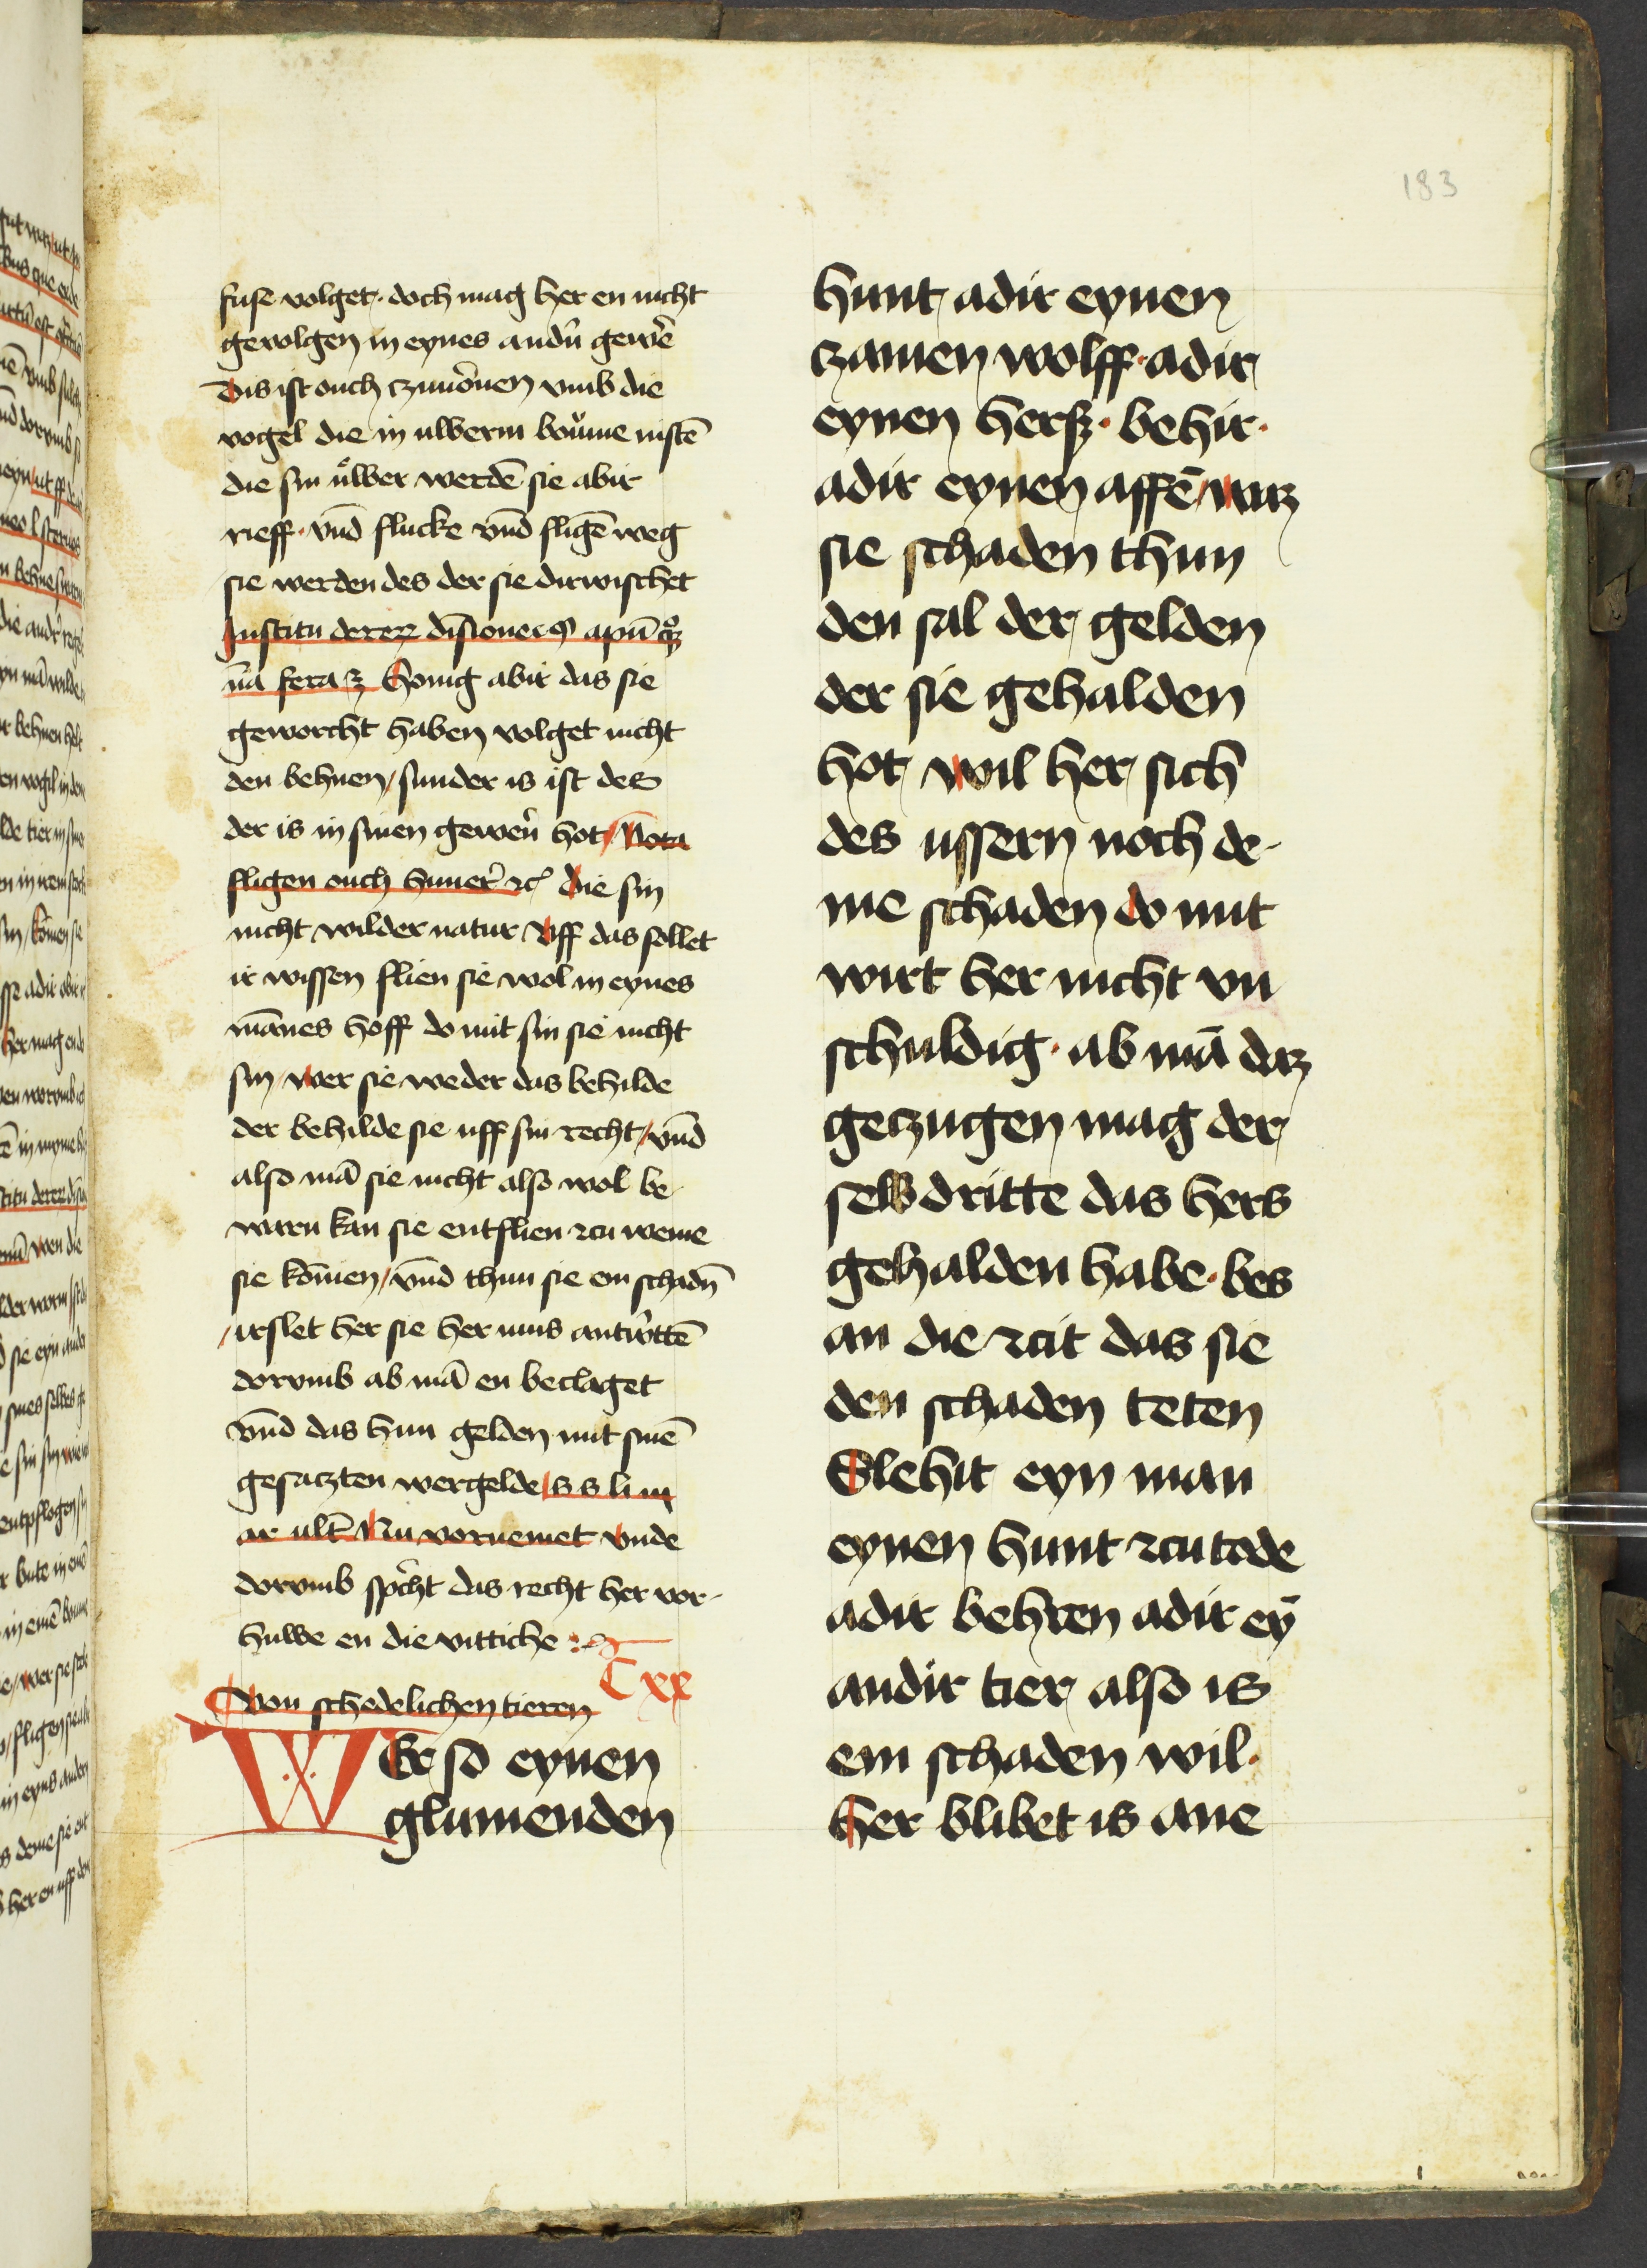 183
fuse volget. doch mag her en nicht
gevolgen in eynes andn̄ gewe͛
Dis ist ouch czuuo͛nen vmb die
vogel die in ulwerm boͧme nistē
die sin uͤlwer werdē sie abir
rieff. vn̄d flucke vn̄d fligē weg
sie werden des der sie dirwischet
Institu de rer diſione
na fera Honig abir das sie
geworcht haben volget nicht
den behnen / sunder is ist des
der is in sinen gewern̄ hot / Nota
fligen ouch huner͛ ꝛc̄ Die sin
nicht wilder natur Vff das sollet
ir wissen flien sie wol in eynes
mānes hoff do mit sin sie nicht
sin / wer sie weder das behilde
der behilde sie uff sin recht / vn̄d
also mā sie nicht also wol be
waren kan sie entflien zcu weme
sie kōmen / vn̄d thun sie em schadn̄
/ irslet her sie her mus antw͛ttē
dorvmb ab mā en beclaget
vn̄d das hun gelden mit sinē
gesaczten wergelde / s s li iii
ar ult̄ Nu vornemet Vnde
dorvmb sp͛cht das recht her vor-
huwe en die vittiche
C xx
Von schedelichen tieren
WEr so eynen
glumenden
hunt adir eynen
czamen wolff. adir
eynen hersz. behir.
adir eynen affē / waz
sie schaden thun
den sal der gelden
der sie gehalden
hot wil her sich
des ussern noch de-
me schaden do mit
wirt her nicht vn
schuldig. ab mā daz
geczugen mag der
selbdritte das hers
gehalden habe. bes
an die zcit das sie
den schaden teten
Slehit eyn man
eynen hunt zcu tode
adir behren adir eȳ
andir tier also is
em schaden wil.
her blibet is ane